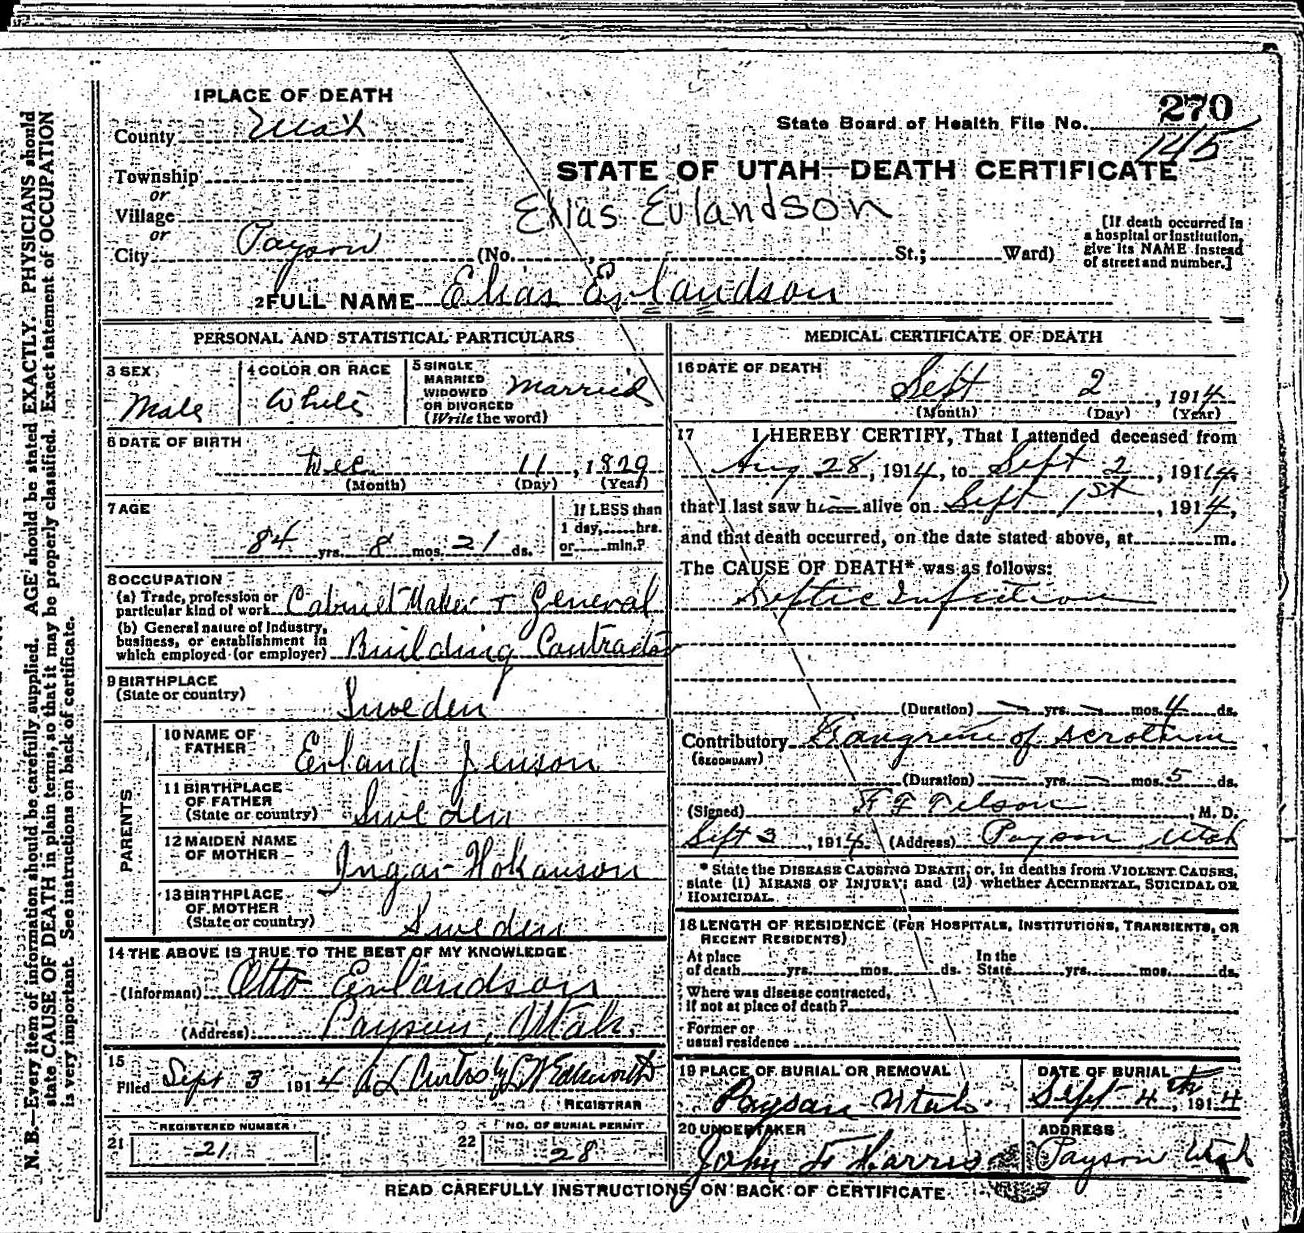 1 PLACE OF DEATH
County Utah
Township
or
Village
or
City Payson (No. , St.; Ward)
270
State Board of Health File No.
145
STATE OF UTAH—DEATH CERTIFICATE
Elias Evlandson
[If death occurred in
a hospital or institution,
give its NAME instead
of street and number.]
2 FULL NAME Elias Erlandson
PERSONAL AND STATISTICAL PARTICULARS
3 SEX
Male
4 COLOR OR RACE
White
5 SINGLE
MARRIED
WIDOWED
OR DIVORCED
(Write the word)
Married
6 DATE OF BIRTH
Dec 11, 1829
(Month) (Day) (Year)
7 AGE
84 yrs. 8 mos. 21 ds.
If LESS than
1 day, hrs.
or min.?
8 OCCUPATION
(a) Trade, profession or
particular kind of work Cabinet Maker + General
(b) General nature of industry,
business, or establishment in
which employed (or employer) Building Contractor
9 BIRTHPLACE
(State or country)
Sweden
PARENTS
10 NAME OF
FATHER
Erland Jenson
11 BIRTHPLACE
OF FATHER
(State or country)
Sweden
12 MAIDEN NAME
OF MOTHER
Ingar Hokanson
13 BIRTHPLACE
OF MOTHER
(State or country)
Sweden
14 THE ABOVE IS TRUE TO THE BEST OF MY KNOWLEDGE
(Informant) Otto Erlandson
(Address) Payson, Utah.
15
Filed Sept 3 1914 L Curtis by
REGISTRAR
21 REGISTERED NUMBER
21
22 NO. OF BURIAL PERMIT
28
MEDICAL CERTIFICATE OF DEATH
16 DATE OF DEATH
Sept 2, 1914
(Month) (Day) (Year)
17 I HEREBY CERTIFY, That I attended deceased from
Aug 28, 1914, to Sept 2, 1914,
that I last saw him alive on Sept 1st, 1914,
and that death occurred, on the date stated above, at m.
The CAUSE OF DEATH* was as follows:
Septic Infection
(Duration) — yrs. — mos. 4 ds.
Contributory Gangrene of scrotum
(SECONDARY)
(Duration) — yrs. — mos. 5 ds.
(Signed) Tilson, M. D.
Sept 3, 1914. (Address) Payson Utah
* State the DISEASE CAUSING DEATH; or, in deaths from VIOLENT CAUSES,
state (1) MEANS OF INJURY; and (2) whether ACCIDENTAL, SUICIDAL OR
HOMICIDAL.
18 LENGTH OF RESIDENCE (FOR HOSPITALS, INSTITUTIONS, TRANSIENTS, OR
RECENT RESIDENTS)
At place
of death yrs. mos. ds.
In the
State yrs. mos. ds.
Where was disease contracted,
If not at place of death?
Former or
usual residence
19 PLACE OF BURIAL OR REMOVAL
Payson Utah.
DATE OF BURIAL
Sept 4th, 1914
20 UNDERTAKER
John F Harris
ADDRESS
Payson Utah
READ CAREFULLY INSTRUCTIONS ON BACK OF CERTIFICATE
N. B.—Every item of information should be carefully supplied. AGE should be stated EXACTLY. PHYSICIANS should
state CAUSE OF DEATH in plain terms, so that it may be properly classified. Exact statement of OCCUPATION
is very important. See instructions on back of certificate.